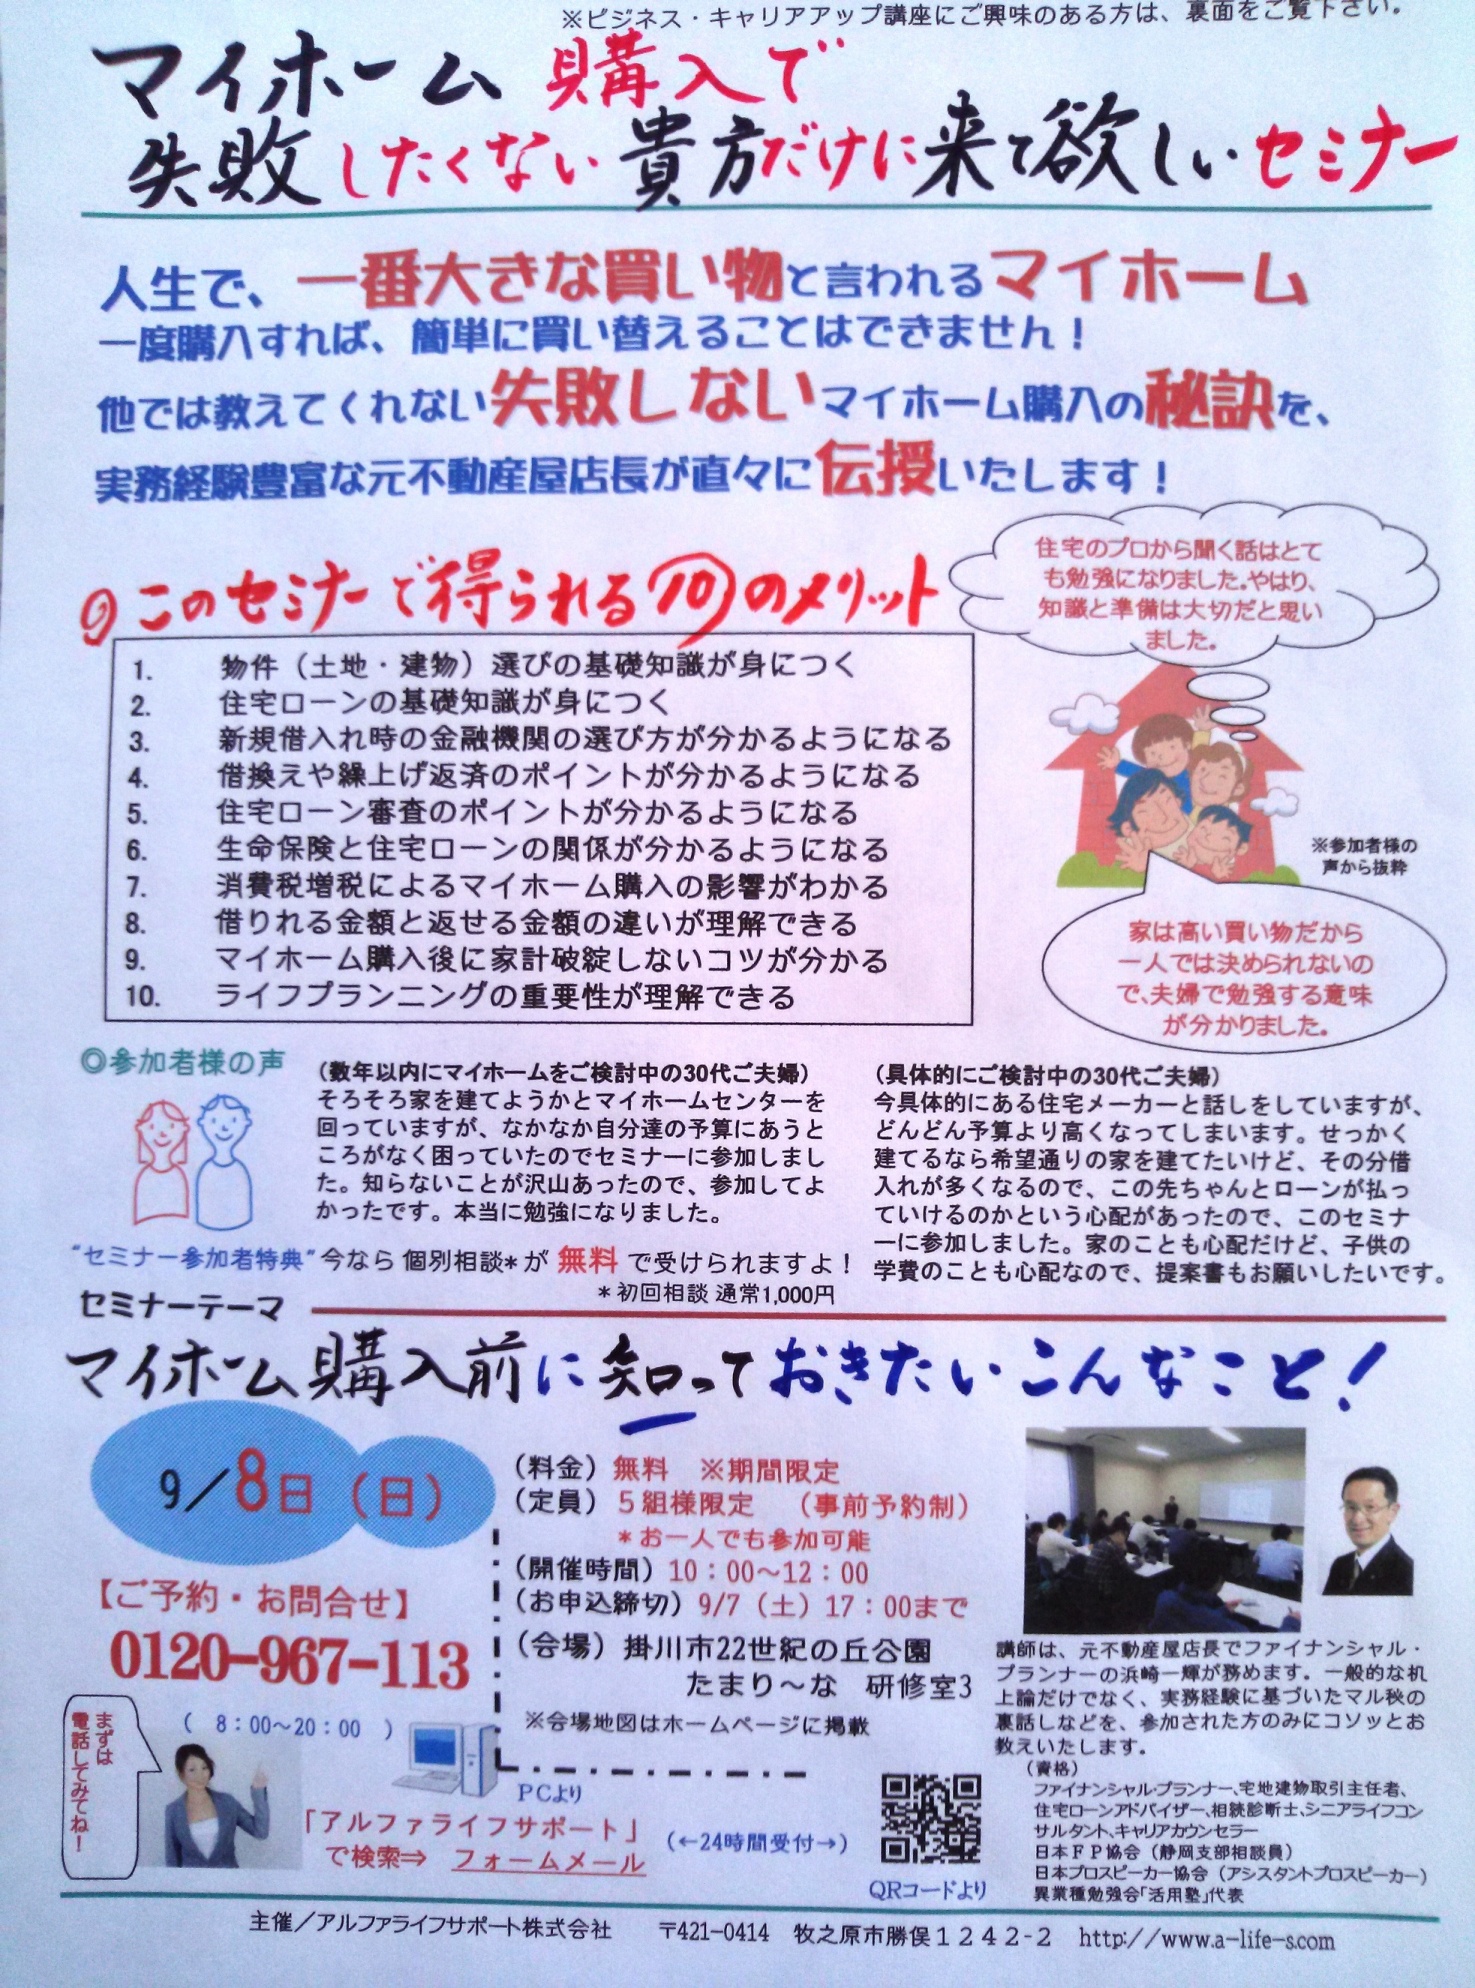 ※ビジネス・キャリアアップ講座にご興味のある方は、裏面をご覧下さい。
マイホーム 購入で
失敗したくない 貴方だけに来て欲しいセミナー
人生で、一番大きな買い物と言われるマイホーム
一度購入すれば、簡単に買い替えることはできません！
他では教えてくれない失敗しないマイホーム購入の秘訣を、
実務経験豊富な元不動産屋店長が直々に伝授いたします！
◎このセミナーで得られる⑩のメリット
1. 物件（土地・建物）選びの基礎知識が身につく
2. 住宅ローンの基礎知識が身につく
3. 新規借入れ時の金融機関の選び方が分かるようになる
4. 借換えや繰上げ返済のポイントが分かるようになる
5. 住宅ローン審査のポイントが分かるようになる
6. 生命保険と住宅ローンの関係が分かるようになる
7. 消費税増税によるマイホーム購入の影響がわかる
8. 借りれる金額と返せる金額の違いが理解できる
9. マイホーム購入後に家計破綻しないコツが分かる
10. ライフプランニングの重要性が理解できる
住宅のプロから聞く話はとて
も勉強になりました。やはり、
知識と準備は大切だと思い
ました。
※参加者様の
声から抜粋
家は高い買い物だから
一人では決められないの
で、夫婦で勉強する意味
が分かりました。
◎参加者様の声
（数年以内にマイホームをご検討中の30代ご夫婦）
そろそろ家を建てようかとマイホームセンターを
回っていますが、なかなか自分達の予算にあうと
ころがなく困っていたのでセミナーに参加しまし
た。知らないことが沢山あったので、参加してよ
かったです。本当に勉強になりました。
（具体的にご検討中の30代ご夫婦）
今具体的にある住宅メーカーと話しをしていますが、
どんどん予算より高くなってしまいます。せっかく
建てるなら希望通りの家を建てたいけど、その分借
入れが多くなるので、この先ちゃんとローンが払っ
ていけるのかという心配があったので、このセミナ
ーに参加しました。家のことも心配だけど、子供の
学費のことも心配なので、提案書もお願いしたいです。
“セミナー参加者特典” 今なら 個別相談*が 無料 で受けられますよ！
*初回相談 通常1,000円
セミナーテーマ
マイホーム購入前に知っておきたいこんなこと！
9／8日（日）
【ご予約・お問合せ】
0120-967-113
（ 8：00～20：00 ）
まずは
電話してみてね！
（料金）無料 ※期間限定
（定員）５組様限定 （事前予約制）
*お一人でも参加可能
（開催時間）10：00～12：00
（お申込締切）9/7（土）17：00まで
（会場）掛川市22世紀の丘公園
たまり～な 研修室3
※会場地図はホームページに掲載
PCより
「アルファライフサポート」
で検索⇒ フォームメール
（←24時間受付→）
QRコードより
講師は、元不動産屋店長でファイナンシャル・
プランナーの浜崎一輝が務めます。一般的な机
上論だけでなく、実務経験に基づいたマル秘の
裏話しなどを、参加された方のみにコソッとお
教えいたします。
（資格）
ファイナンシャル・プランナー、宅地建物取引主任者、
住宅ローンアドバイザー、相続診断士、シニアライフコン
サルタント、キャリアカウンセラー
日本ＦＰ協会（静岡支部相談員）
日本プロスピーカー協会（アシスタントプロスピーカー）
異業種勉強会「活用塾」代表
主催／アルファライフサポート株式会社 〒421-0414 牧之原市勝俣１２４２-２ http://www.a-life-s.com